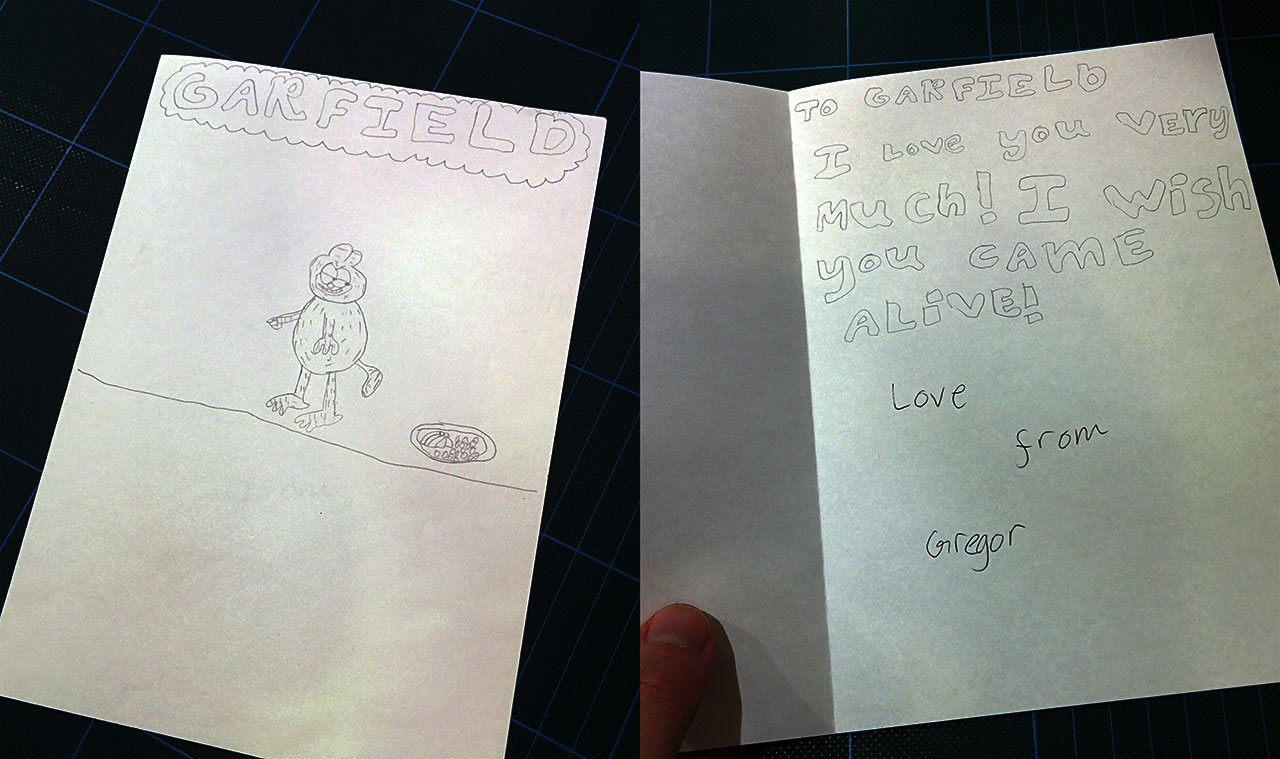 GARFIELD
TO GARFIELD
I LOVE you VERy
much! I Wish
you CAME
ALiVE!
Love
from
Gregor